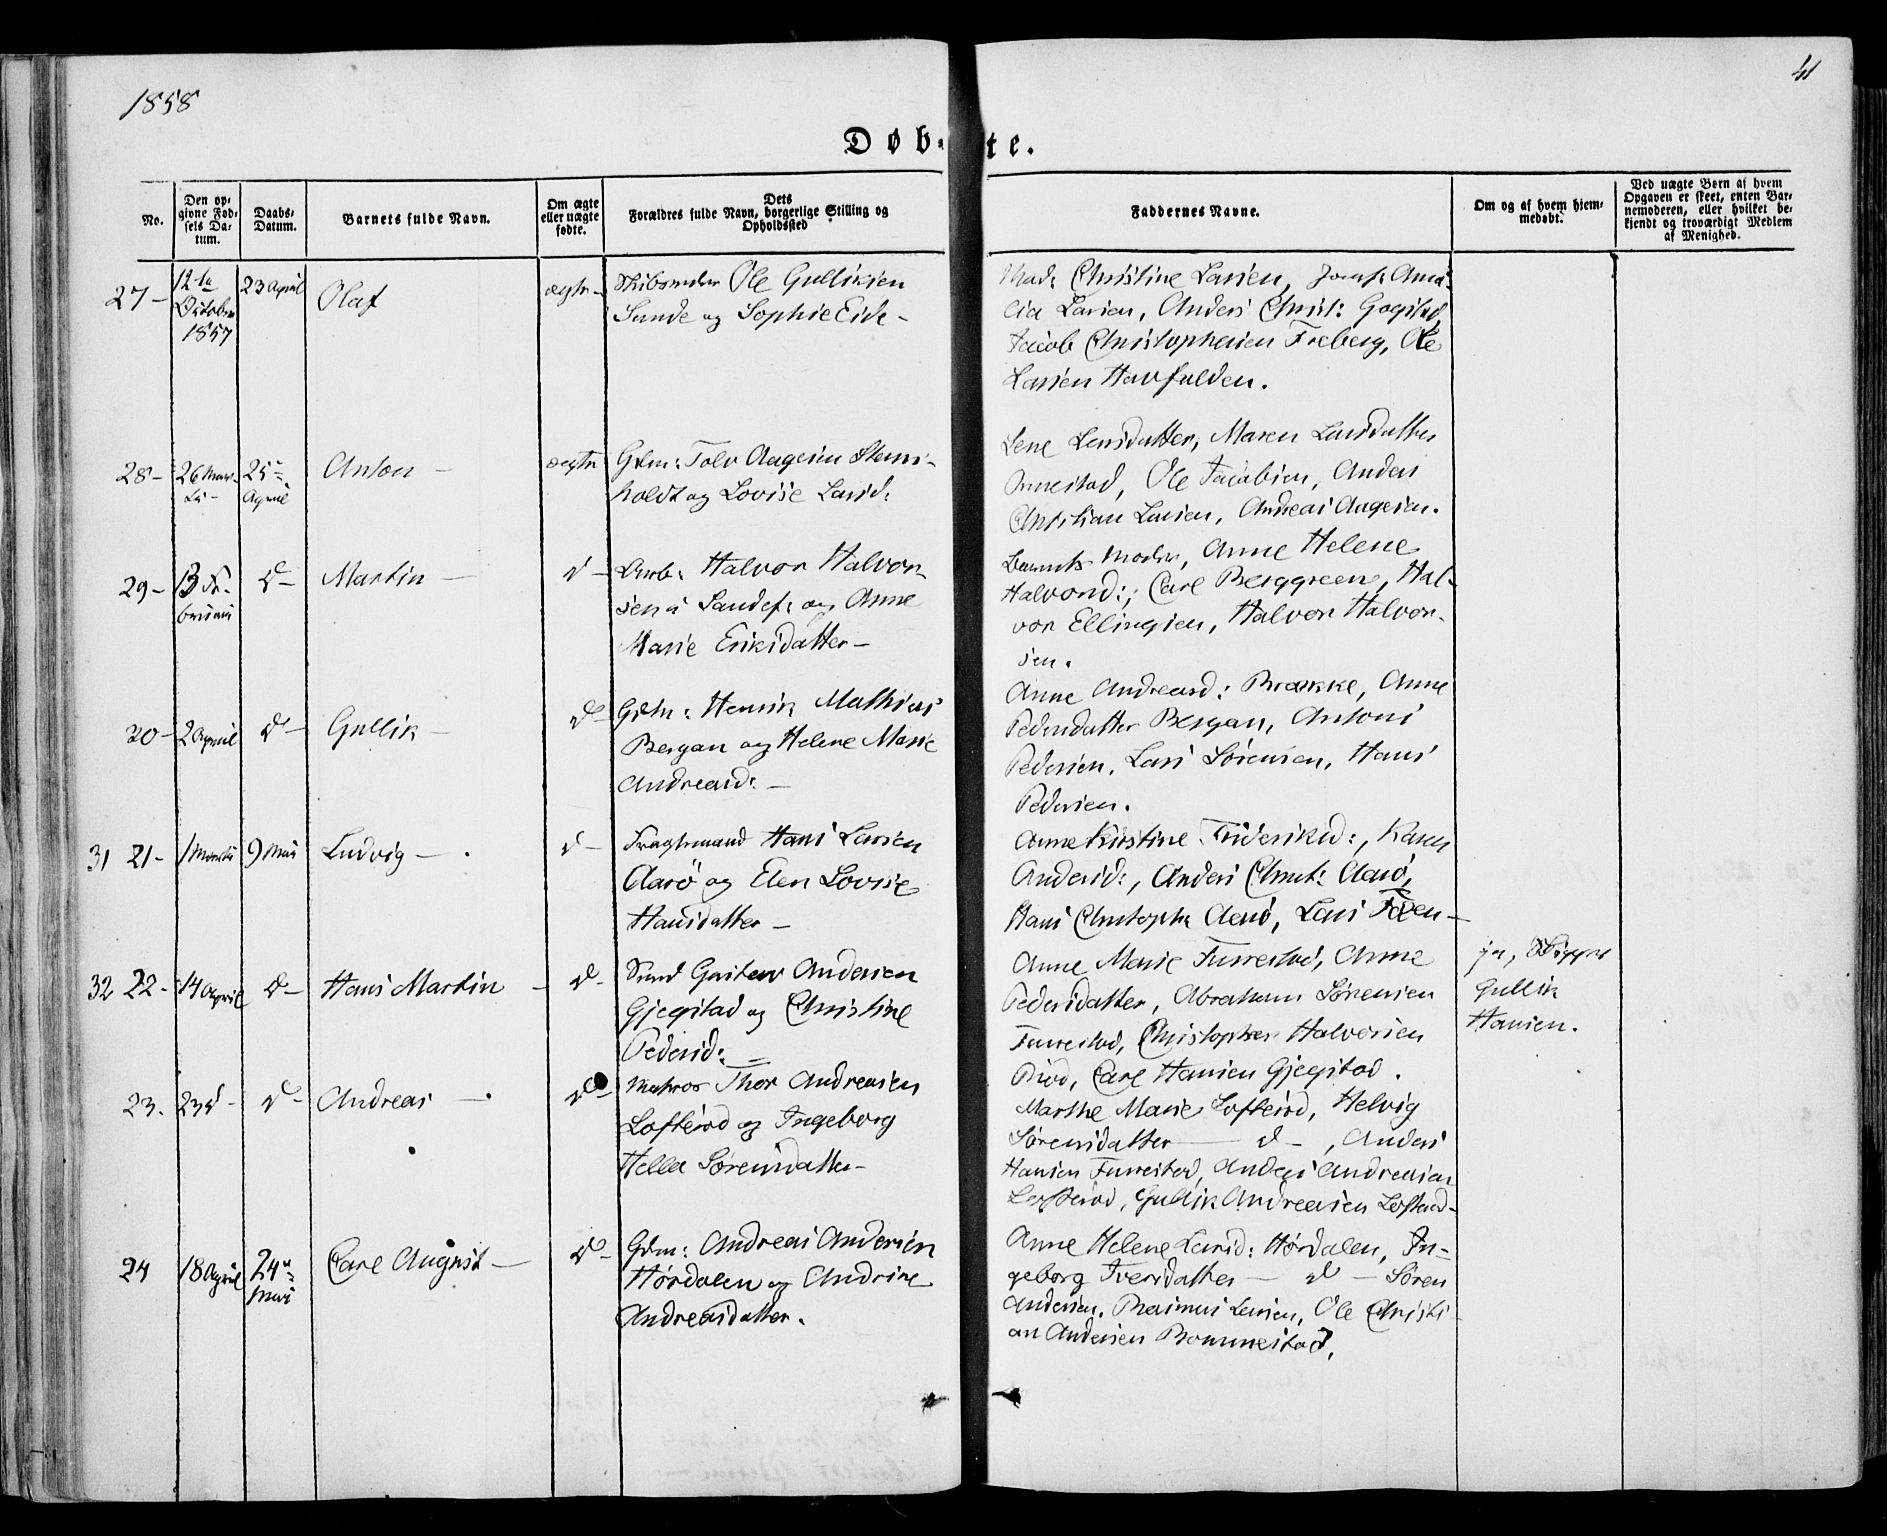 1858
41
Døb-te.
No.
Den op-
givne Fød-
sels Da-
tum.
Daabs-
Datum.
Barnets fulde Navn.
Om ægte
eller uægte
fødte.
Dets
Forældres fulde Navn, borgerlige Stilling og
Opholdssted
Faddernes Navne.
Om og af hvem hjem-
medøbt.
Ved uægte Børn af hvem
Opgaven er skeet, enten Bar-
nemoderen, eller hvilket be-
kjendt og troværdigt Medlem
af Menighed.
27-
12te
Octobr
1857
23 April
Olaf
ægte-
Skibsreder Ole Gulliksen
Sunde og Sophie Eide-
Mad: Christine Larsen, Jomf: Ama-
lia Larsen, Anders Christ: Gogstad,
Jacob Christophersen Freberg, Ole
Larsen Havfalden.
28-
26 Mar-
ti-
25
April
Anton -
ægte
Gdm: Tolv Aagesen Stens-
holdt og Lovise Larsd:
Lene Larsdatter, Maren Larsdatter
Onnestad, Ole Jacobsen, Anders
Christian Larsen, Andreas Aagesen.
29-
13 Fe-
bruari
d-
Martin -
d-
Arb: Halvor Halvor-
sen i Sandef: og Anne
Marie Eriksdatter-
Barnets Moder, Anne Helene
Halvorsd:, Carl Berggreen, Hal-
vor Ellingsen, Halvor Halvor-
sen.
20-
2 April
d-
Gullik -
d-
Gdm: Henrik Mathias
Bergan og Helene Marie
Andreasd: -
Anne Andreasd: Brække, Anne
Pedersdatter Bergan, Antoni
Pedersen, Lars Sørensen, Hans
Pedersen.
31 21-
1 Marti
9 Mai
Ludvig -
d-
Fragtemand Hans Larsen
Aarø og Elen Lovise
Hansdatter -
Anne Kirstine Frideriksd:, Karen
Andersd:, Anders Christ: Aarø,
Hans Christoph: Aarø, Lars Foxen-
32 22-
14 April
d-
Hans Martin -
d-
Smed Gustav Andersen
Gjegstad og Christine
Pedersd: -
Anne Marie Furrestad, Anne
Pedersdatter, Abraham Sørensen
Furrestad, Christopher Halvorsen
Riød, Carl Hansen Gjegstad.
ja,
Gullik
Hansen.
23.
23 d-
d-
Andreas -
d-
Matros Thor Andreasen
Lofterød og Ingeborg
Hella Sørensdatter-
Marthe Marie Lofterød, Helvig
Sørensdatter - d-, Anders
Hansen Furrestad, Anders Andreasen
Lofterød, Gullik Andreasen Lofterød-
24
18 April
24
Mai
Carl August -
d-
Gdm: Andreas Andersen
Hørdalen og Andrine
Andreasdatter.
Anne Helene Larsd: Hørdalen, In-
geborg Iversdatter - d - Søren
Andersen, Rasmus Larsen, Ole Christi-
an Andersen Rommestad,